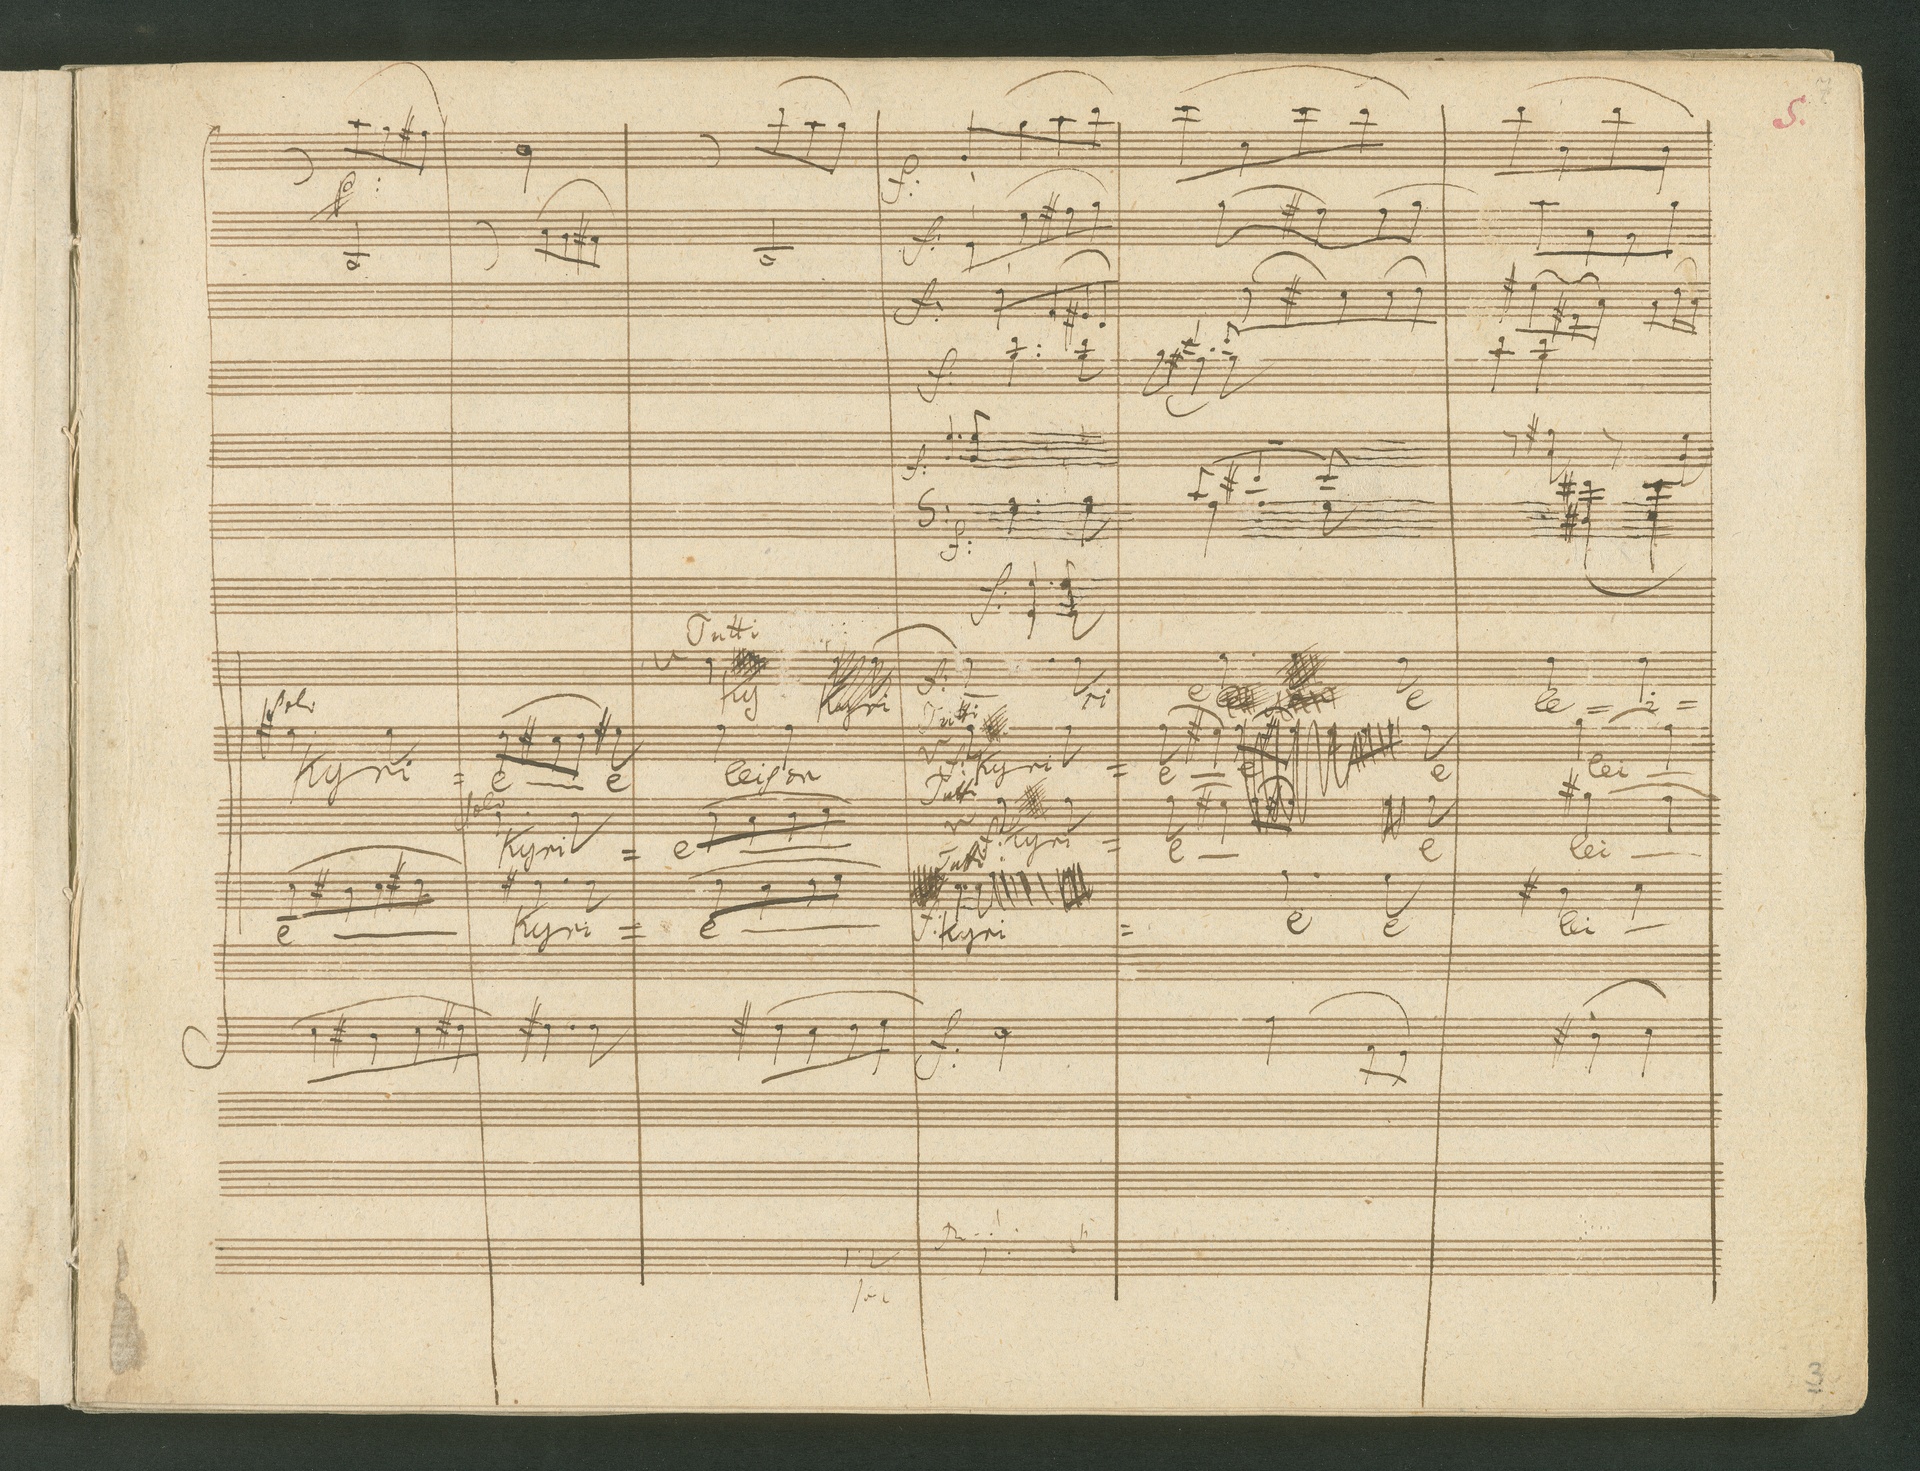 7
5.
p:
f:
f:
f:
f:
f:
S: f:
f:
Tutti
f:
Ky Kyri ri e e le = i =
Solo Tutti
f:
Kyri = e e leison Kyri = e e lei
Solo Tutti
f:
Kyri = e Kyri = e e lei
Tutti
e Kyri = e f: Kyri = e e lei
f:
3